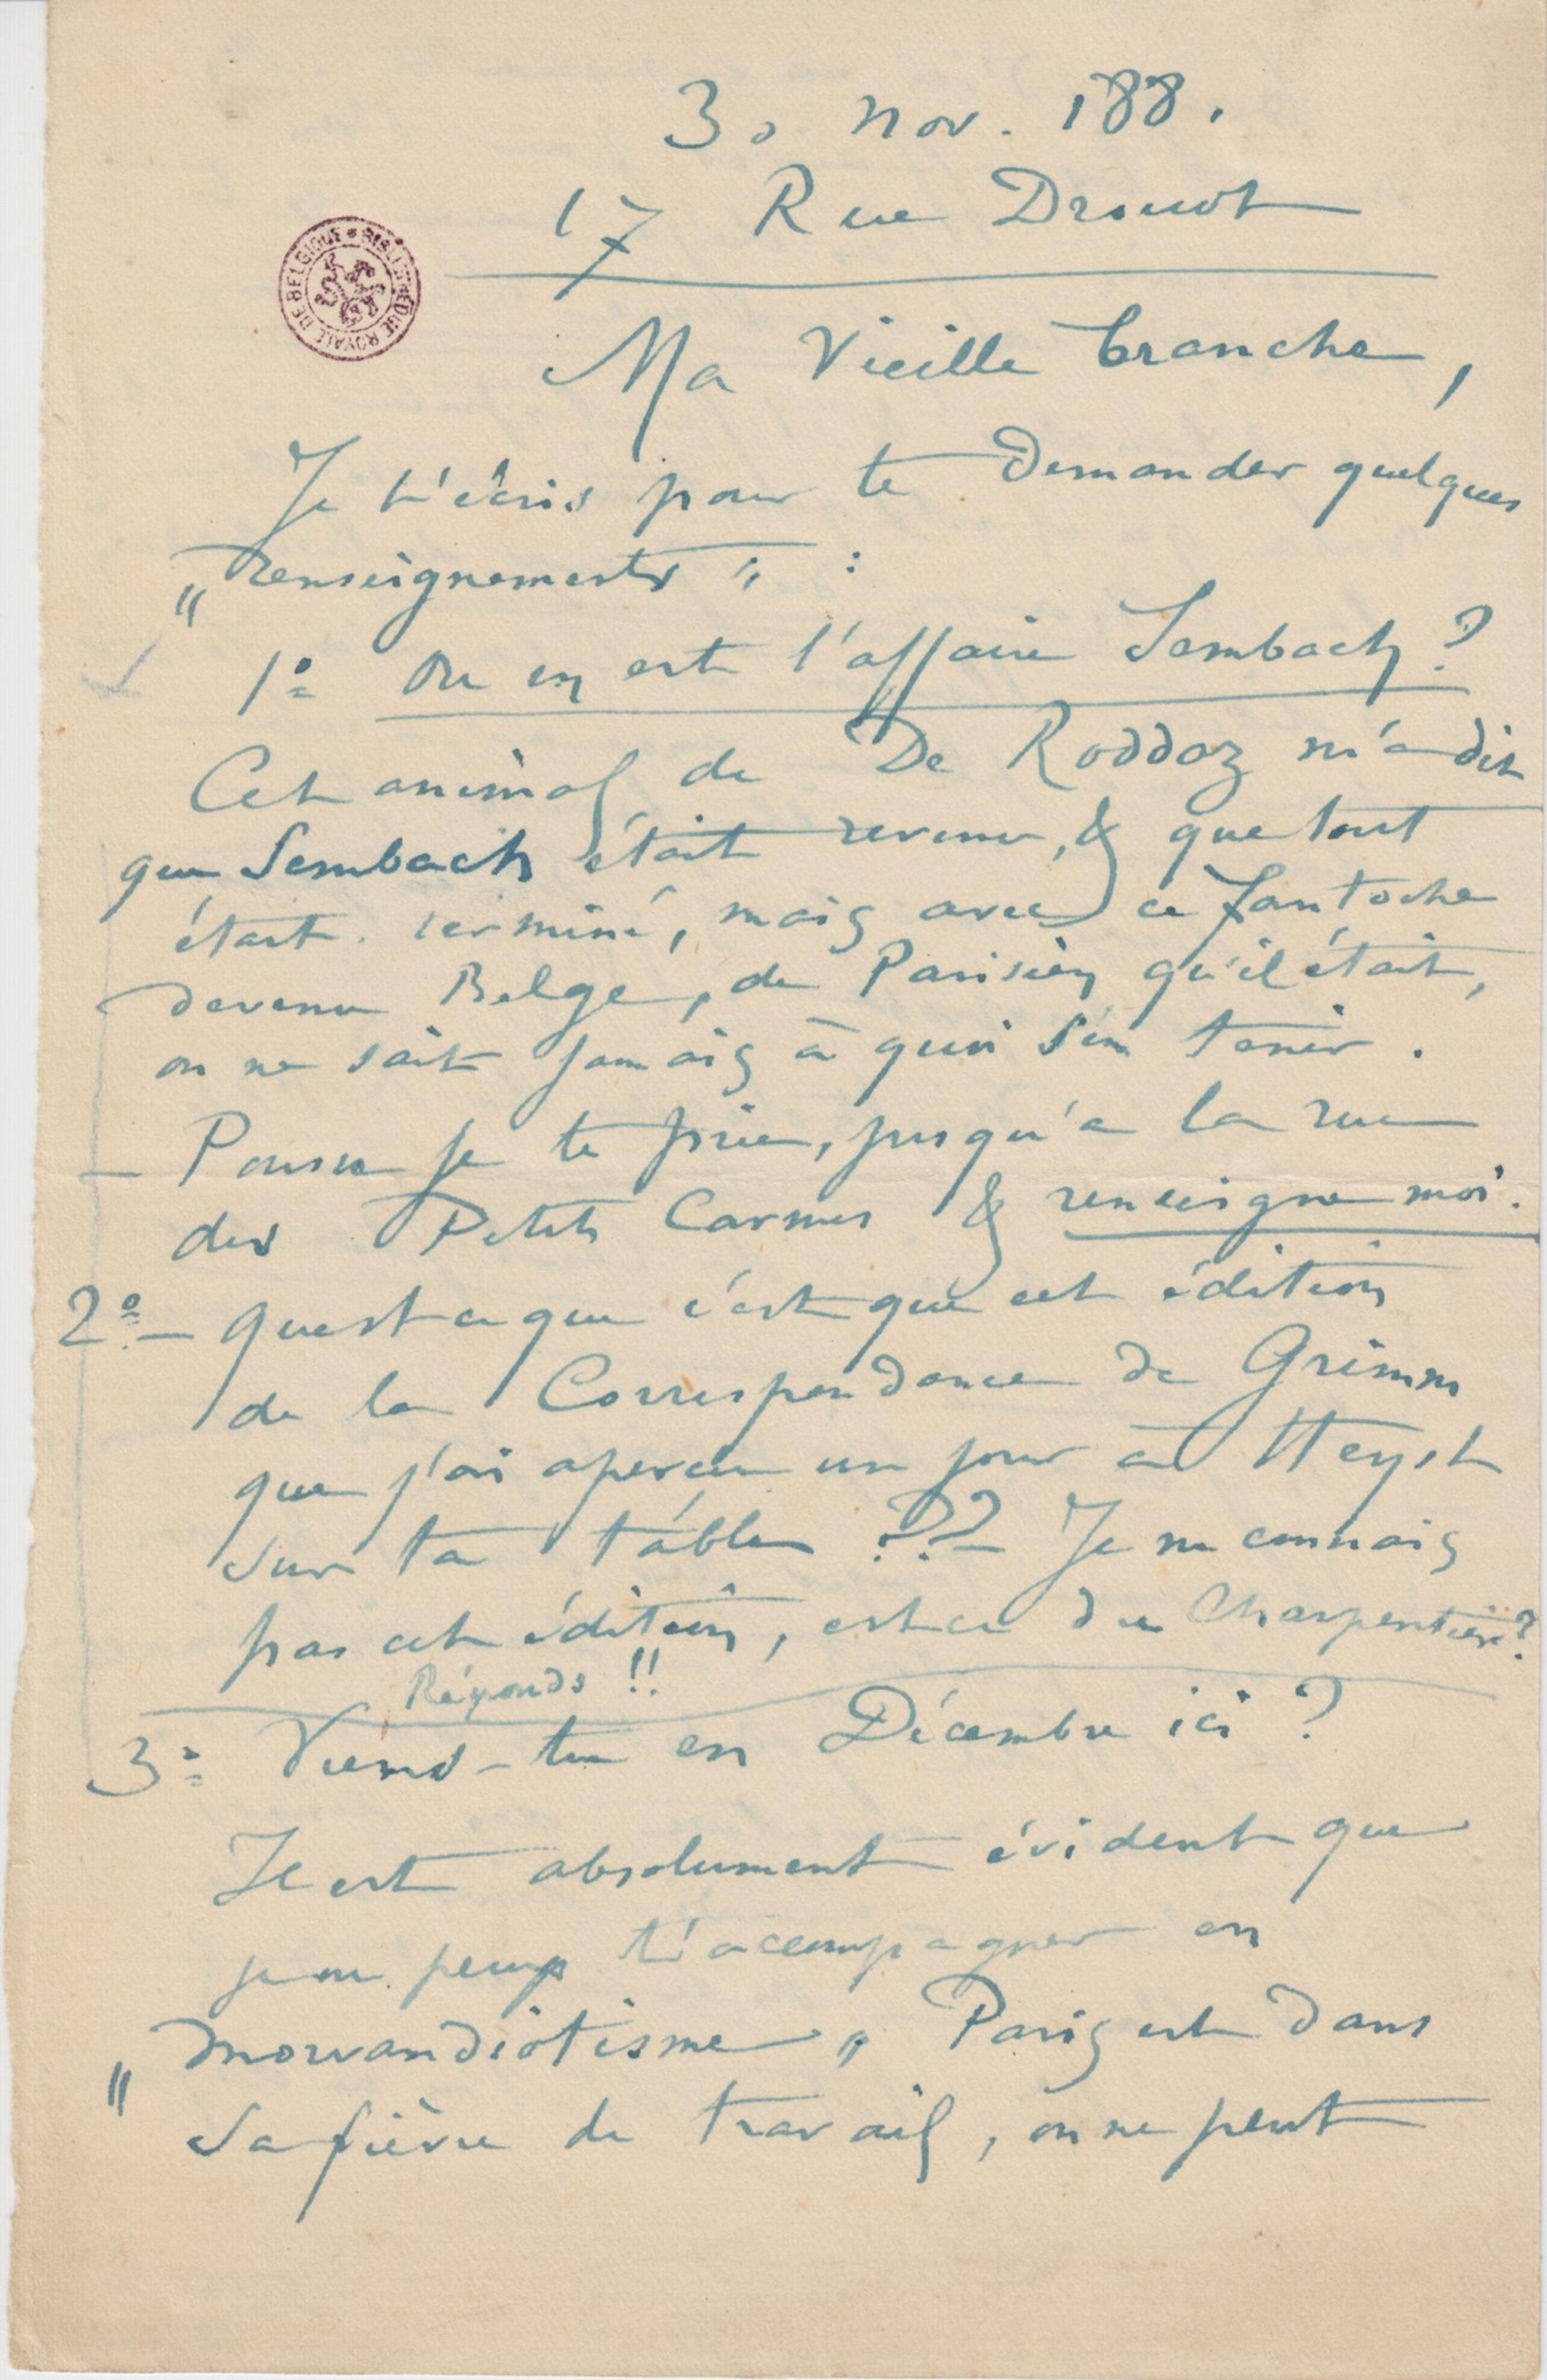 30 Nov. 188.
17 Rue Drouot
BIBLIOTHÈQUE ROYALE DE BELGIQUE
Ma Vieille branche,
Je t'écris pour te Demander quelques
„ renseignements " :
1o Ou en est l'affaire Sembach ?
Cet animal de De Roddaz m'a dit
que Sembach était revenu, & que tout
était terminé, mais avec ce fantoche
devenu Belge, de Parisien qu'il était,
on ne sait jamais à quoi s'en tenir.
– Pousse je te prie, jusqu'a la rue
des Petits Carmes & renseigne moi.
2o – Quest ce que c'est que cet édition
de la Correspondance de Grimm
que j'ai apercu un jour à Heyst
sur ta table ?? – Je ne connais
pas cet édition, est ce du Charpentier ?
Réponds !!
3o Viens-tu en Décembre ici ?
Il est absolument évident que
je ne peux t'accompagner en
„ morvandiotisme " Paris est dans
sa fièvre de travail, on ne peut